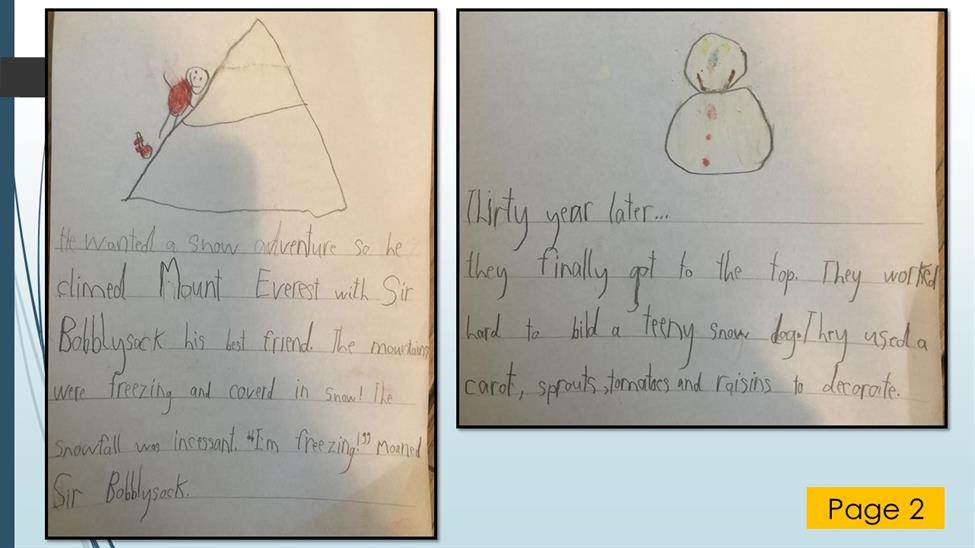 He wanted a snow adventure so he
climed Mount Everest with Sir
Bobblysock his best friend. The mountains
were freezing and coverd in snow! The
snowfall was incessant. "I'm freezing!" moaned
Sir Bobblysock.
Thirty year later...
they finally got to the top. They worked
hard to bild a teeny snow dog. They used a
carot, sprouts, tomatoes and raisins to decorate.
Page 2